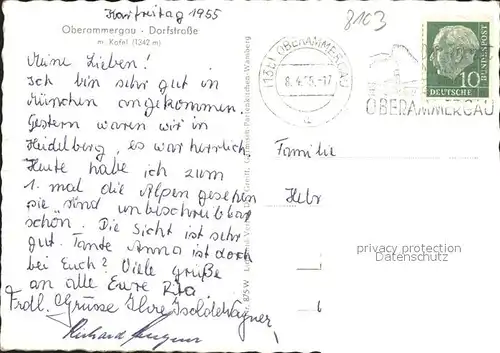 Karfreitag 1955
8103
Oberammergau - Dorfstraße
m. Kofel (1342 m)
Meine Lieben!
Ich bin sehr gut in
München angekommen.
Gestern waren wir in
Heidelberg, es war herrlich.
Heute habe ich zum
1. mal die Alpen gesehen
sie sind unbeschreibbar
schön. Die Sicht ist sehr
gut. Tante Anna ist doch
bei Euch? Viele grüße
an alle Eure Rita
Frdl. Grüsse Ihre Isolde Wagner
Richard
(13b) OBERAMMERGAU
8.4.55.-17
a
OBERAMMERGAU
DEUTSCHE
BUNDESPOST
10
Familie
Hebr
privacy protection
Datenschutz
b